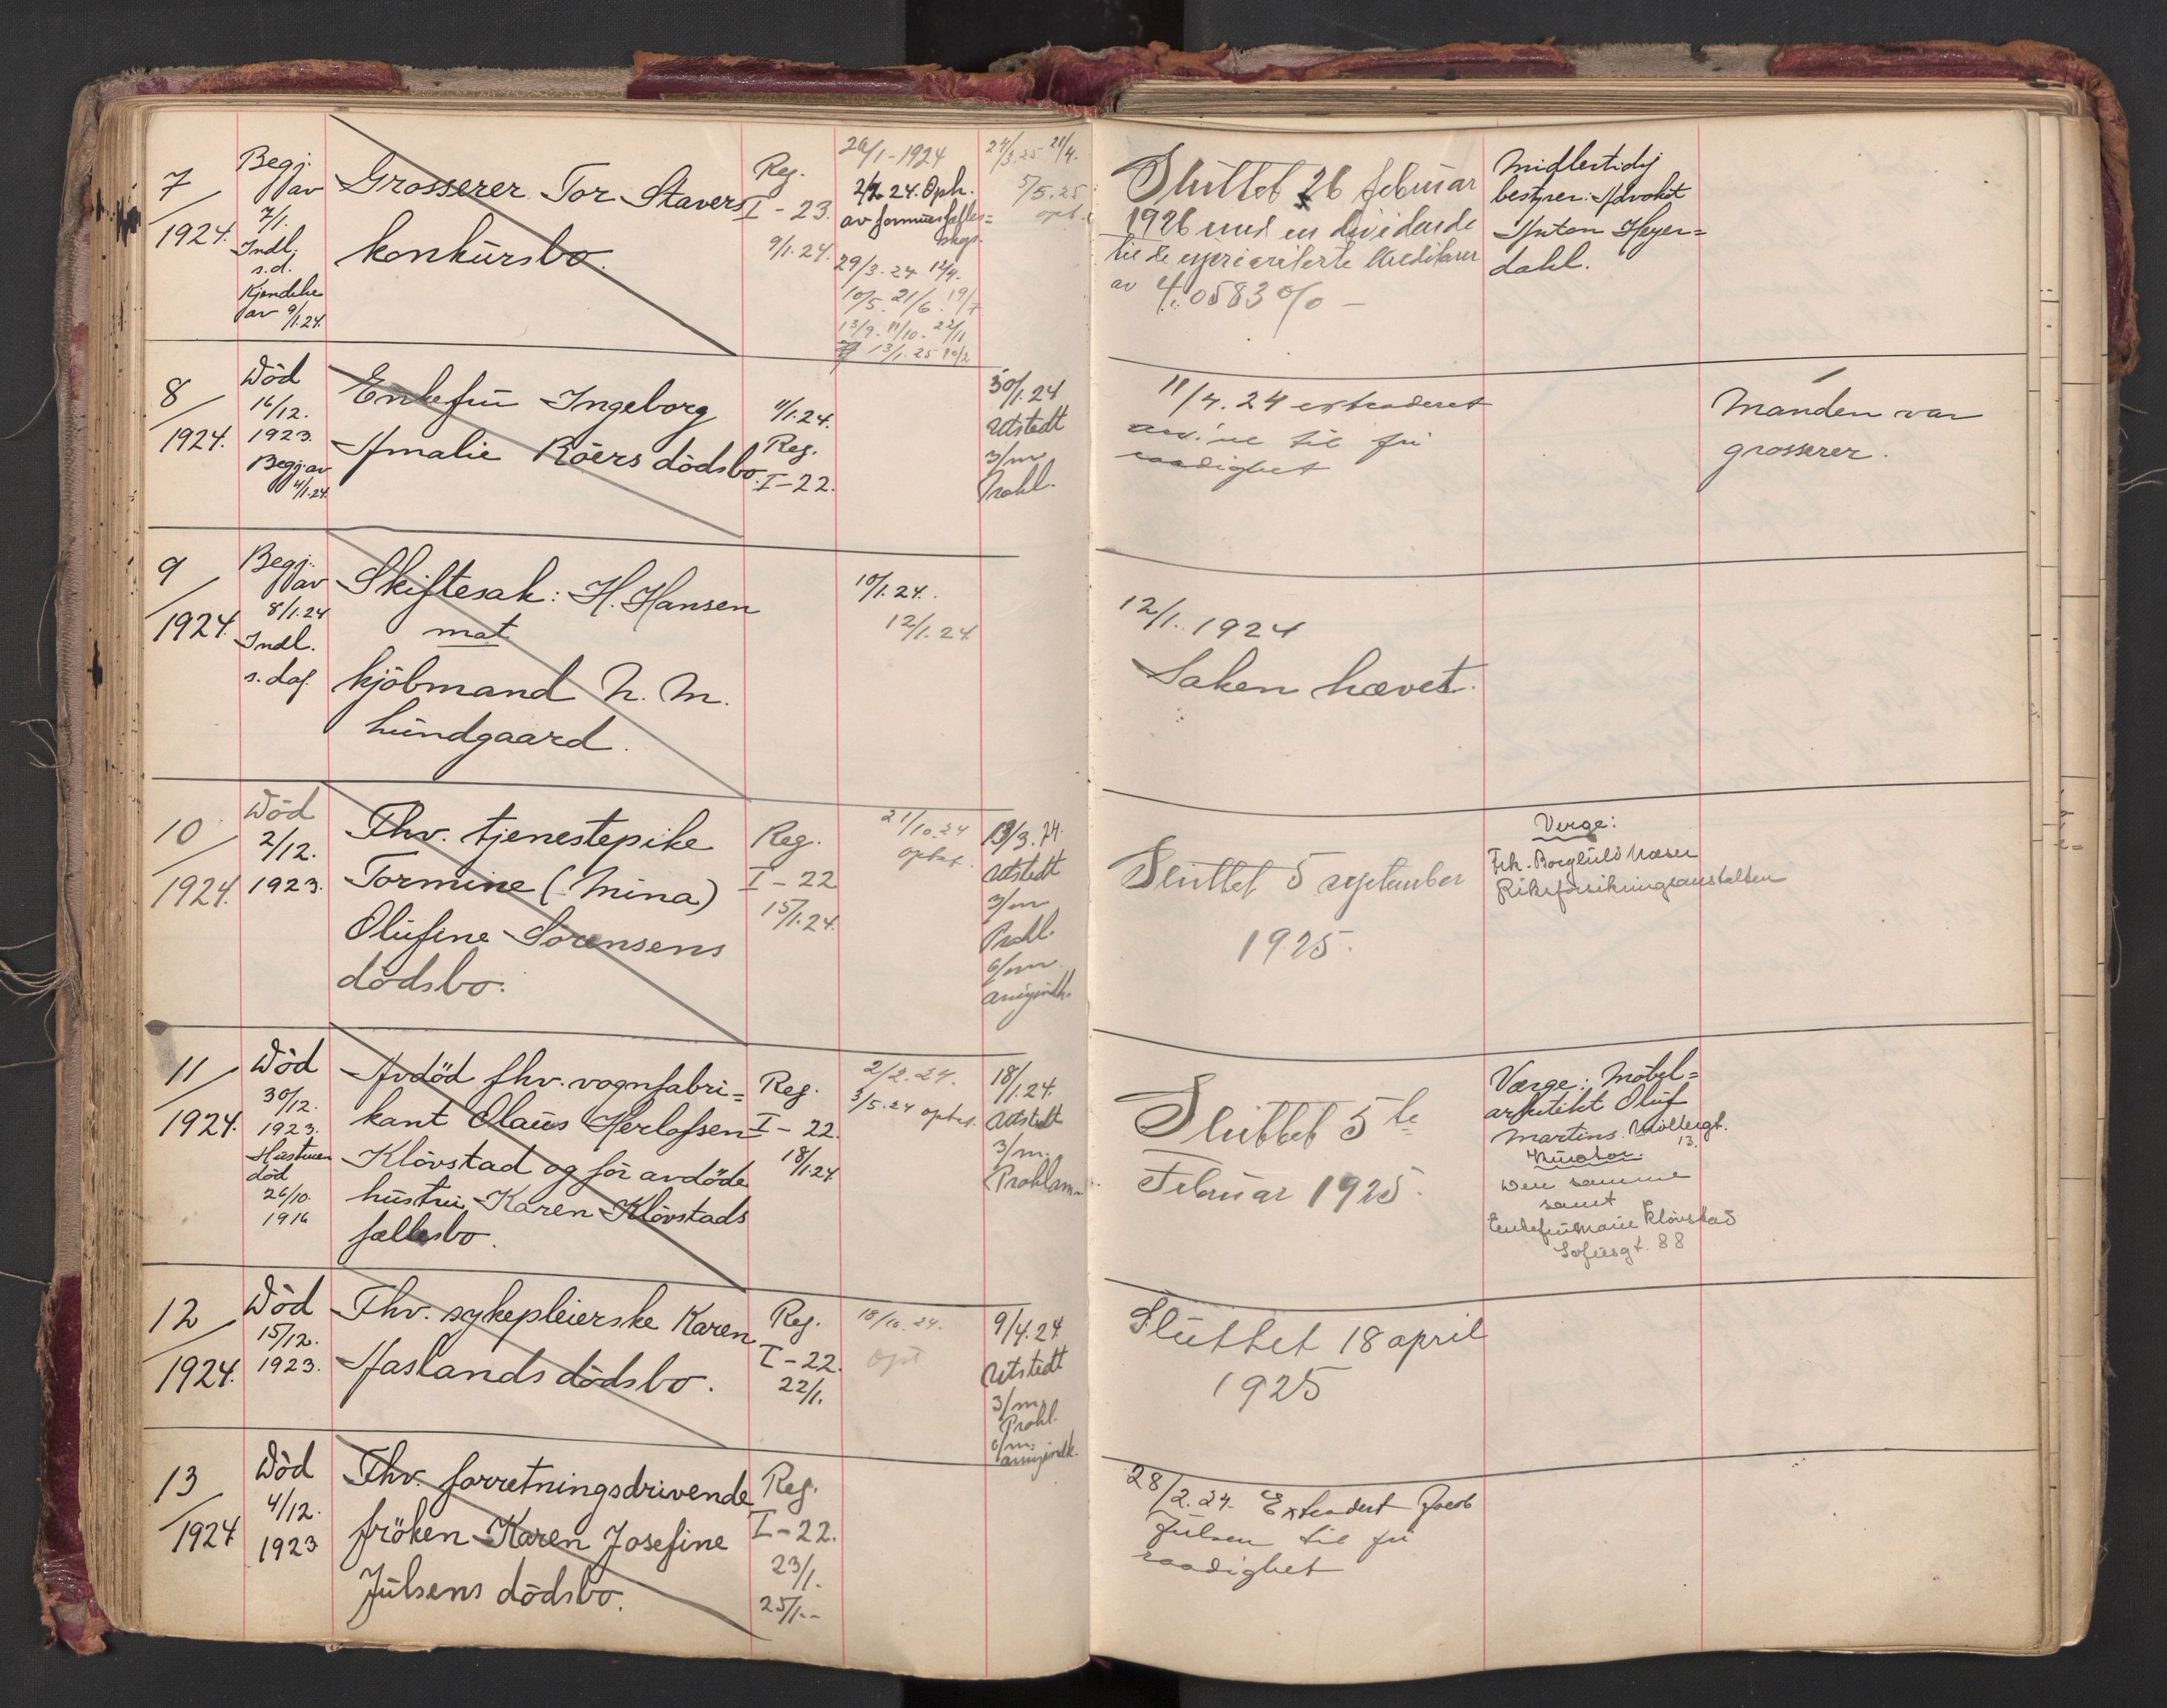 7
1924.
Begj.
av
7/1.
Indl.
s.d.
Kjendelse
av 9/1.24.
Grosserer Tor Stavers
konkursbo.
Reg.
I-23.
9/1.24.
26/1-1924
2/2 24. Oph.
av formuesfælles=
skap.
29/3.24 12/4.
10/5. 21/6. 19/7
13/9. 11/10. 22/11
13/1.25 10/2
24/3.25 21/4.
5/5.25
opt.
Sluttet 26 februar
1926 med en dividende
til de uprioriterte kreditorer
av 4.0583 % -
Midlertidig
bestyrer: Advokat
Anton Heyer=
dahl.
8
1924.
Död
16/12.
1923.
Begj. av
4/1.24.
Enkefru Ingeborg
Amalie Röers dödsbo.
11/1.24.
Reg.
I-22.
30/1.24
Utstedt
3/m
Prokl.
11/4.24 extraderet
til fri
raadighet
Manden var
grosserer.
9
1924.
Begj.
av
8/1.24
Indl.
s. dag.
Skiftesak: H. Hansen
mot
kjöbmand N. M.
Lundgaard.
10/1.24.
12/1.24
12/1. 1924
Saken hævet.
10
1924.
Död
2/12.
1923.
Fhv. tjenestepike
Tormine (Mina)
Olufine Sorensens
dödsbo.
Reg.
I-22
15/1.24.
21/10.24
13/3.24.
Utstedt
3/m
Prokl.
6/m
Sluttet 5 september
1925.
Verge:
Frk. Borghild
Riksforsikringsanstalten
11
1924.
Död
30/12.
1923.
Hustruen
död
26/10.
1916
Avdöd fhv. vognfabri=
kant Olaus Herlofsen
Klövstad og for avdöde
hustru Karen Klövstads
fællesbo.
Reg.
I-22.
18/1.24
2/2.24.
3/5.24
18/1.24.
Utstedt
3/m.
Proklam.
Sluttet 5te
Februar 1925.
Værge: Möbel=
arkitekt Oluf
Martins. Möllergt.
13.
Kurator:
Den samme
samt
Enkefru Marie Klövstad
Sofiesgt. 88
12
1924.
Död
15/12.
1923.
Fhv. sykepleierske Karen
Haslands dödsbo.
Reg.
I-22.
22/1.
18/10.24.
opt
9/4.24
Utstedt
3/m
Prokl.
6/m.
Sluttet 18 april
1925
13
1924
Död
4/12.
1923
Fhv. forretningsdrivende
fröken Karen Josefine
Julsens dödsbo.
Reg.
I-22.
23/1.
25/1.-
28/2.24. Extradert Jacob
Julsen til fri
raadighet